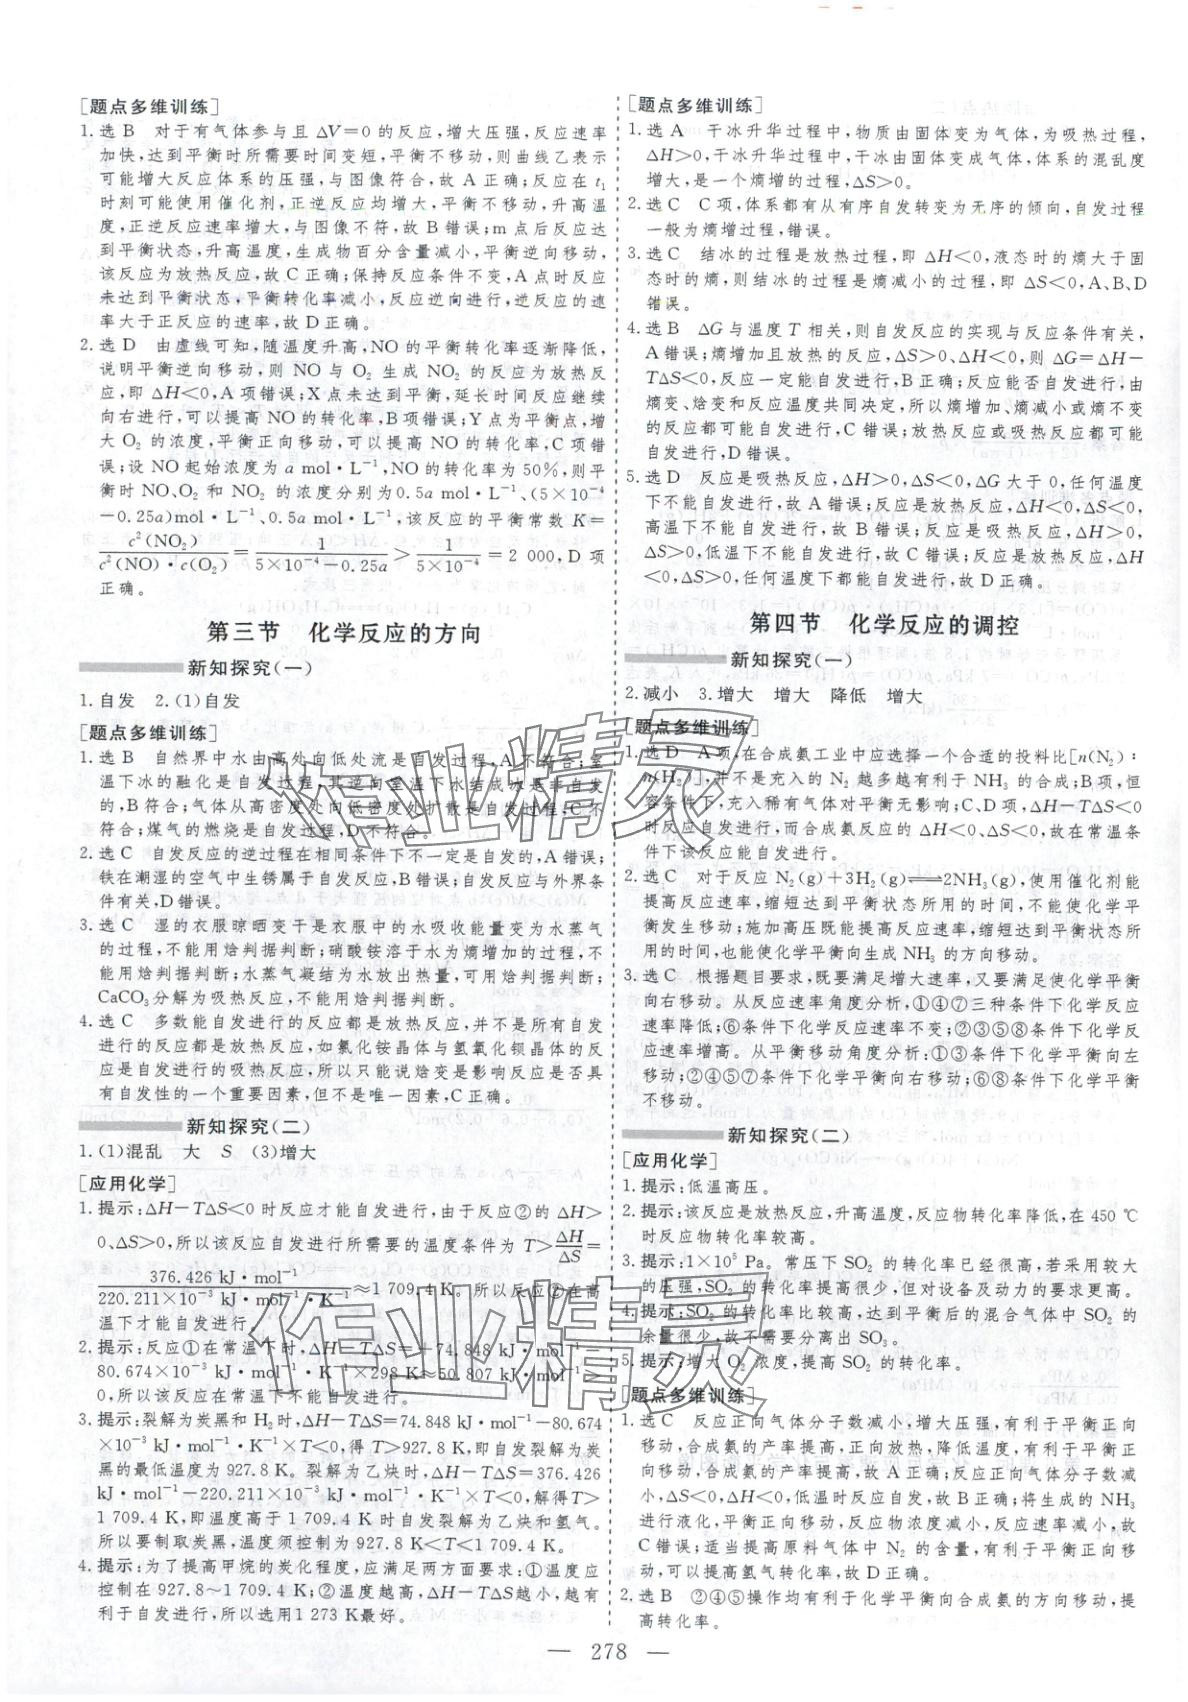 [题点多维训练]
1.选B 对于有气体参与且 ΔV＝0的反应,增大压强,反应速率
加快,达到平衡时所需要时间变短,平衡不移动,则曲线乙表示
可能增大反应体系的压强,与图像符合,故A正确;反应在 t₁
时刻可能使用催化剂,正逆反应均增大,平衡不移动,升高温
度,正逆反应速率增大,与图像不符,故B错误;m点后反应达
到平衡状态,升高温度,生成物百分含量减小,平衡逆向移动,
该反应为放热反应,故C正确;保持反应条件不变,A点时反应
未达到平衡状态,平衡转化率减小,反应逆向进行,逆反应的速
率大于正反应的速率,故D正确。
2.选D 由虚线可知,随温度升高,NO的平衡转化率逐渐降低,
说明平衡逆向移动,则 NO 与 O₂ 生成 NO₂ 的反应为放热反
应,即 ΔH＜0,A项错误;X点未达到平衡,延长时间反应继续
向右进行,可以提高NO的转化率,B项错误;Y点为平衡点,增
大 O₂ 的浓度,平衡正向移动,可以提高 NO 的转化率,C项错
误;设 NO 起始浓度为 a mol·L⁻¹,NO 的转化率为 50%,则平
衡时NO、O₂ 和 NO₂ 的浓度分别为0.5a mol·L⁻¹、(5×10⁻⁴
－0.25a)mol·L⁻¹、0.5a mol·L⁻¹,该反应的平衡常数 K＝
c²(NO₂)/[c²(NO)·c(O₂)]＝1/(5×10⁻⁴－0.25a)＞1/(5×10⁻⁴)＝2 000,D项
正确。
第三节 化学反应的方向
新知探究(一)
1.自发 2.(1)自发
[题点多维训练]
1.选B 自然界中水由高处向低处流是自发过程,A不符合;室
温下冰的融化是自发过程,其逆向室温下水结成冰是非自发过
程,B符合;气体从高密度处向低密度处扩散是自发过程,C不
符合;煤气的燃烧是自发过程,D不符合。
2.选C 自发反应的逆过程在相同条件下不一定是自发的,A错误;
铁在潮湿的空气中生锈属于自发反应,B错误;自发反应与外界条
件有关,D错误。
3.选C 湿的衣服晾晒变干是衣服中的水吸收能量变为水蒸气
的过程,不能用焓判据判断;硝酸铵溶于水为熵增加的过程,不
能用焓判据判断;水蒸气凝结为水放出热量,可用焓判据判断;
CaCO₃分解为吸热反应,不能用焓判据判断。
4.选C 多数能自发进行的反应都是放热反应,并不是所有自发
进行的反应都是放热反应,如氯化铵晶体与氢氧化钡晶体的反
应是自发进行的吸热反应,所以只能说焓变是影响反应是否具
有自发性的一个重要因素,但不是唯一因素,C正确。
新知探究(二)
1.(1)混乱 大 S (3)增大
[应用化学]
1.提示:ΔH－TΔS＜0时反应才能自发进行,由于反应②的 ΔH＞
0、ΔS＞0,所以该反应自发进行所需要的温度条件为 T＞ΔH/ΔS＝
376.426 kJ·mol⁻¹/(220.211×10⁻³ kJ·mol⁻¹·K⁻¹)≈1 709.4 K。所以反应②在高
温下才能自发进行。
2.提示:反应①在常温下时,ΔH－TΔS＝＋74.848 kJ·mol⁻¹－
80.674×10⁻³ kJ·mol⁻¹·K⁻¹×298 K≈50.807 kJ·mol⁻¹＞
0,所以该反应在常温下不能自发进行。
3.提示:裂解为炭黑和 H₂ 时,ΔH－TΔS＝74.848 kJ·mol⁻¹－80.674
×10⁻³ kJ·mol⁻¹·K⁻¹×T＜0,得 T＞927.8 K,即自发裂解为炭
黑的最低温度为 927.8 K。裂解为乙炔时,ΔH－TΔS＝376.426
kJ·mol⁻¹－220.211×10⁻³ kJ·mol⁻¹·K⁻¹×T＜0,解得T＞
1 709.4 K,即温度高于 1 709.4 K 时自发裂解为乙炔和氢气。
所以要制取炭黑,温度须控制为 927.8 K＜T＜1 709.4 K。
4.提示:为了提高甲烷的炭化程度,应满足两方面要求:①温度应
控制在927.8～1 709.4 K;②温度越高,ΔH－TΔS越小,越有
利于自发进行,所以选用1 273 K最好。
[题点多维训练]
1.选A 干冰升华过程中,物质由固体变为气体,为吸热过程,
ΔH＞0,干冰升华过程中,干冰由固体变成气体,体系的混乱度
增大,是一个熵增的过程,ΔS＞0。
2.选C C项,体系都有从有序自发转变为无序的倾向,自发过程
一般为熵增过程,错误。
3.选C 结冰的过程是放热过程,即 ΔH＜0,液态时的熵大于固
态时的熵,则结冰的过程是熵减小的过程,即 ΔS＜0,A、B、D
错误。
4.选B ΔG与温度 T 相关,则自发反应的实现与反应条件有关,
A错误;熵增加且放热的反应,ΔS＞0、ΔH＜0,则 ΔG＝ΔH－
TΔS＜0,反应一定能自发进行,B正确;反应能否自发进行,由
熵变、焓变和反应温度共同决定,所以熵增加、熵减小或熵不变
的反应都可能自发进行,C错误;放热反应或吸热反应都可能
自发进行,D错误。
5.选D 反应是吸热反应,ΔH＞0,ΔS＜0,ΔG大于0,任何温度
下不能自发进行,故A错误;反应是放热反应,ΔH＜0,ΔS＜0,
高温下不能自发进行,故B错误;反应是吸热反应,ΔH＞0,
ΔS＞0,低温下不能自发进行,故C错误;反应是放热反应,ΔH
＜0,ΔS＞0,任何温度下都能自发进行,故D正确。
第四节 化学反应的调控
新知探究(一)
2.减小 3.增大 增大 降低 增大
[题点多维训练]
1.选D A项,在合成氨工业中应选择一个合适的投料比[n(N₂)∶
n(H₂)],并不是充入的 N₂ 越多越有利于 NH₃ 的合成;B项,恒
容条件下,充入稀有气体对平衡无影响;C、D项,ΔH－TΔS＜0
时反应自发进行,而合成氨反应的 ΔH＜0、ΔS＜0,故在常温条
件下该反应能自发进行。
2.选C 对于反应 N₂(g)＋3H₂(g)⇌2NH₃(g),使用催化剂能
提高反应速率,缩短达到平衡状态所用的时间,不能使化学平
衡发生移动;施加高压既能提高反应速率,缩短达到平衡状态所
用的时间,也能使化学平衡向生成 NH₃ 的方向移动。
3.选C 根据题目要求,既要满足增大速率,又要满足使化学平衡
向右移动。从反应速率角度分析,①④⑦三种条件下化学反应
速率降低;⑥条件下化学反应速率不变;②③⑤⑧条件下化学反
应速率增高。从平衡移动角度分析:①③条件下化学平衡向左
移动;②④⑤⑦条件下化学平衡向右移动;⑥⑧条件下化学平衡
不移动。
新知探究(二)
[应用化学]
1.提示:低温高压。
2.提示:该反应是放热反应,升高温度,反应物转化率降低,在450 ℃
时反应物转化率较高。
3.提示:1×10⁵ Pa。常压下 SO₂ 的转化率已经很高,若采用较大
的压强,SO₂ 的转化率提高很少,但对设备及动力的要求更高。
4.提示:SO₂ 的转化率比较高,达到平衡后的混合气体中 SO₂ 的
余量很少,故不需要分离出 SO₃。
5.提示:增大 O₂ 浓度,提高 SO₂ 的转化率。
[题点多维训练]
1.选C 反应正向气体分子数减小,增大压强,有利于平衡正向
移动,合成氨的产率提高,正向放热,降低温度,有利于平衡正
向移动,合成氨的产率提高,故A正确;反应正向气体分子数减
小,ΔS＜0,ΔH＜0,低温时反应自发,故B正确;将生成的 NH₃
进行液化,平衡正向移动,反应物浓度减小,反应速率减小,故
C错误;适当提高原料气体中 N₂ 的含量,有利于平衡正向移
动,可以提高氢气转化率,故D正确。
2.选B ②④⑤操作均有利于化学平衡向合成氨的方向移动,提
高转化率。
— 278 —
作业精灵
作业精灵